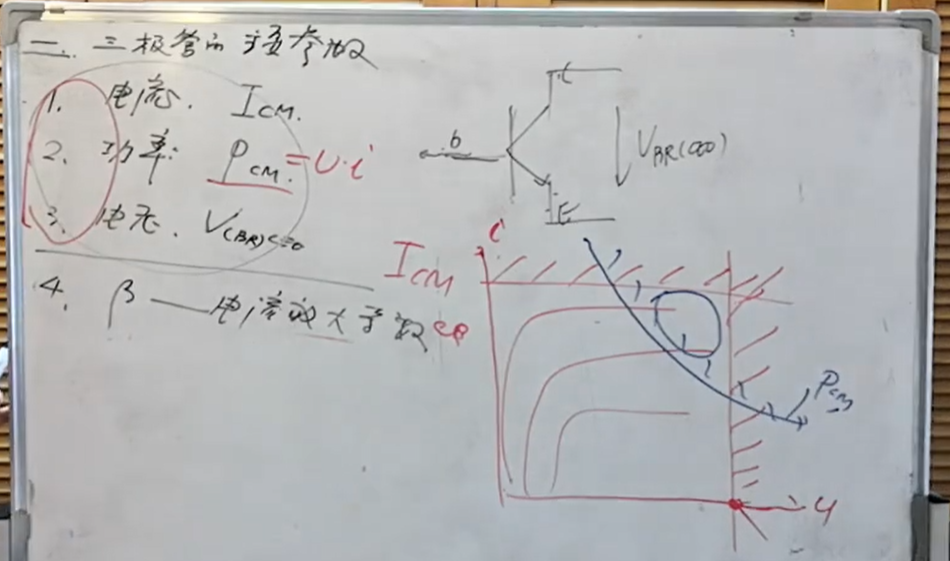 二、三极管的主要参数
1. 电流. ICM.
2. 功率: PCM. = U·i
3. 电压. V(BR)CEO
4. β — 电流放大系数
b
C
E
VBR(CEO)
i
ICM
PCM
u